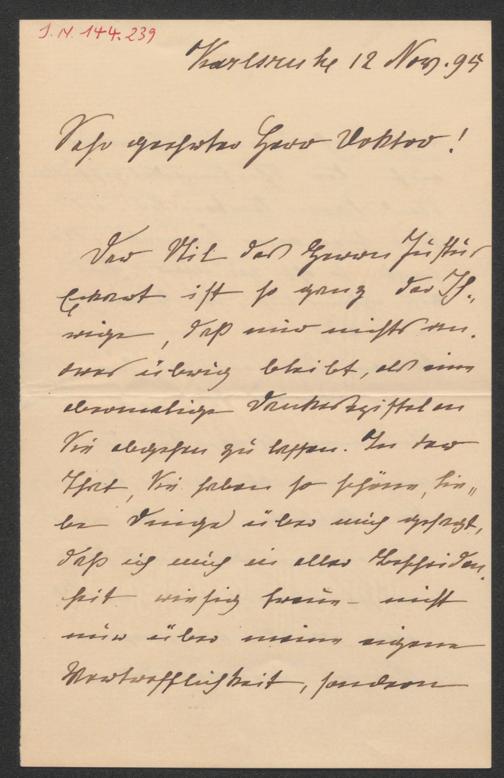 J.N. 144.239
Karlsruhe 12 Nov. 95
Sehr geehrter Herr Doktor!
Der Stil des Herrn Justus
Eckart ist so ganz der Ih-
rige, daß mir nichts an-
deres übrig bleibt, als eine
abermalige Dankesepistel an
Sie abgehen zu lassen. In der
That, Sie haben so schöne, lie-
be Dinge über mich gesagt,
daß ich mich in aller Bescheiden-
heit riesig freue - nicht
nur über meine eigene
Vortrefflichkeit, sondern